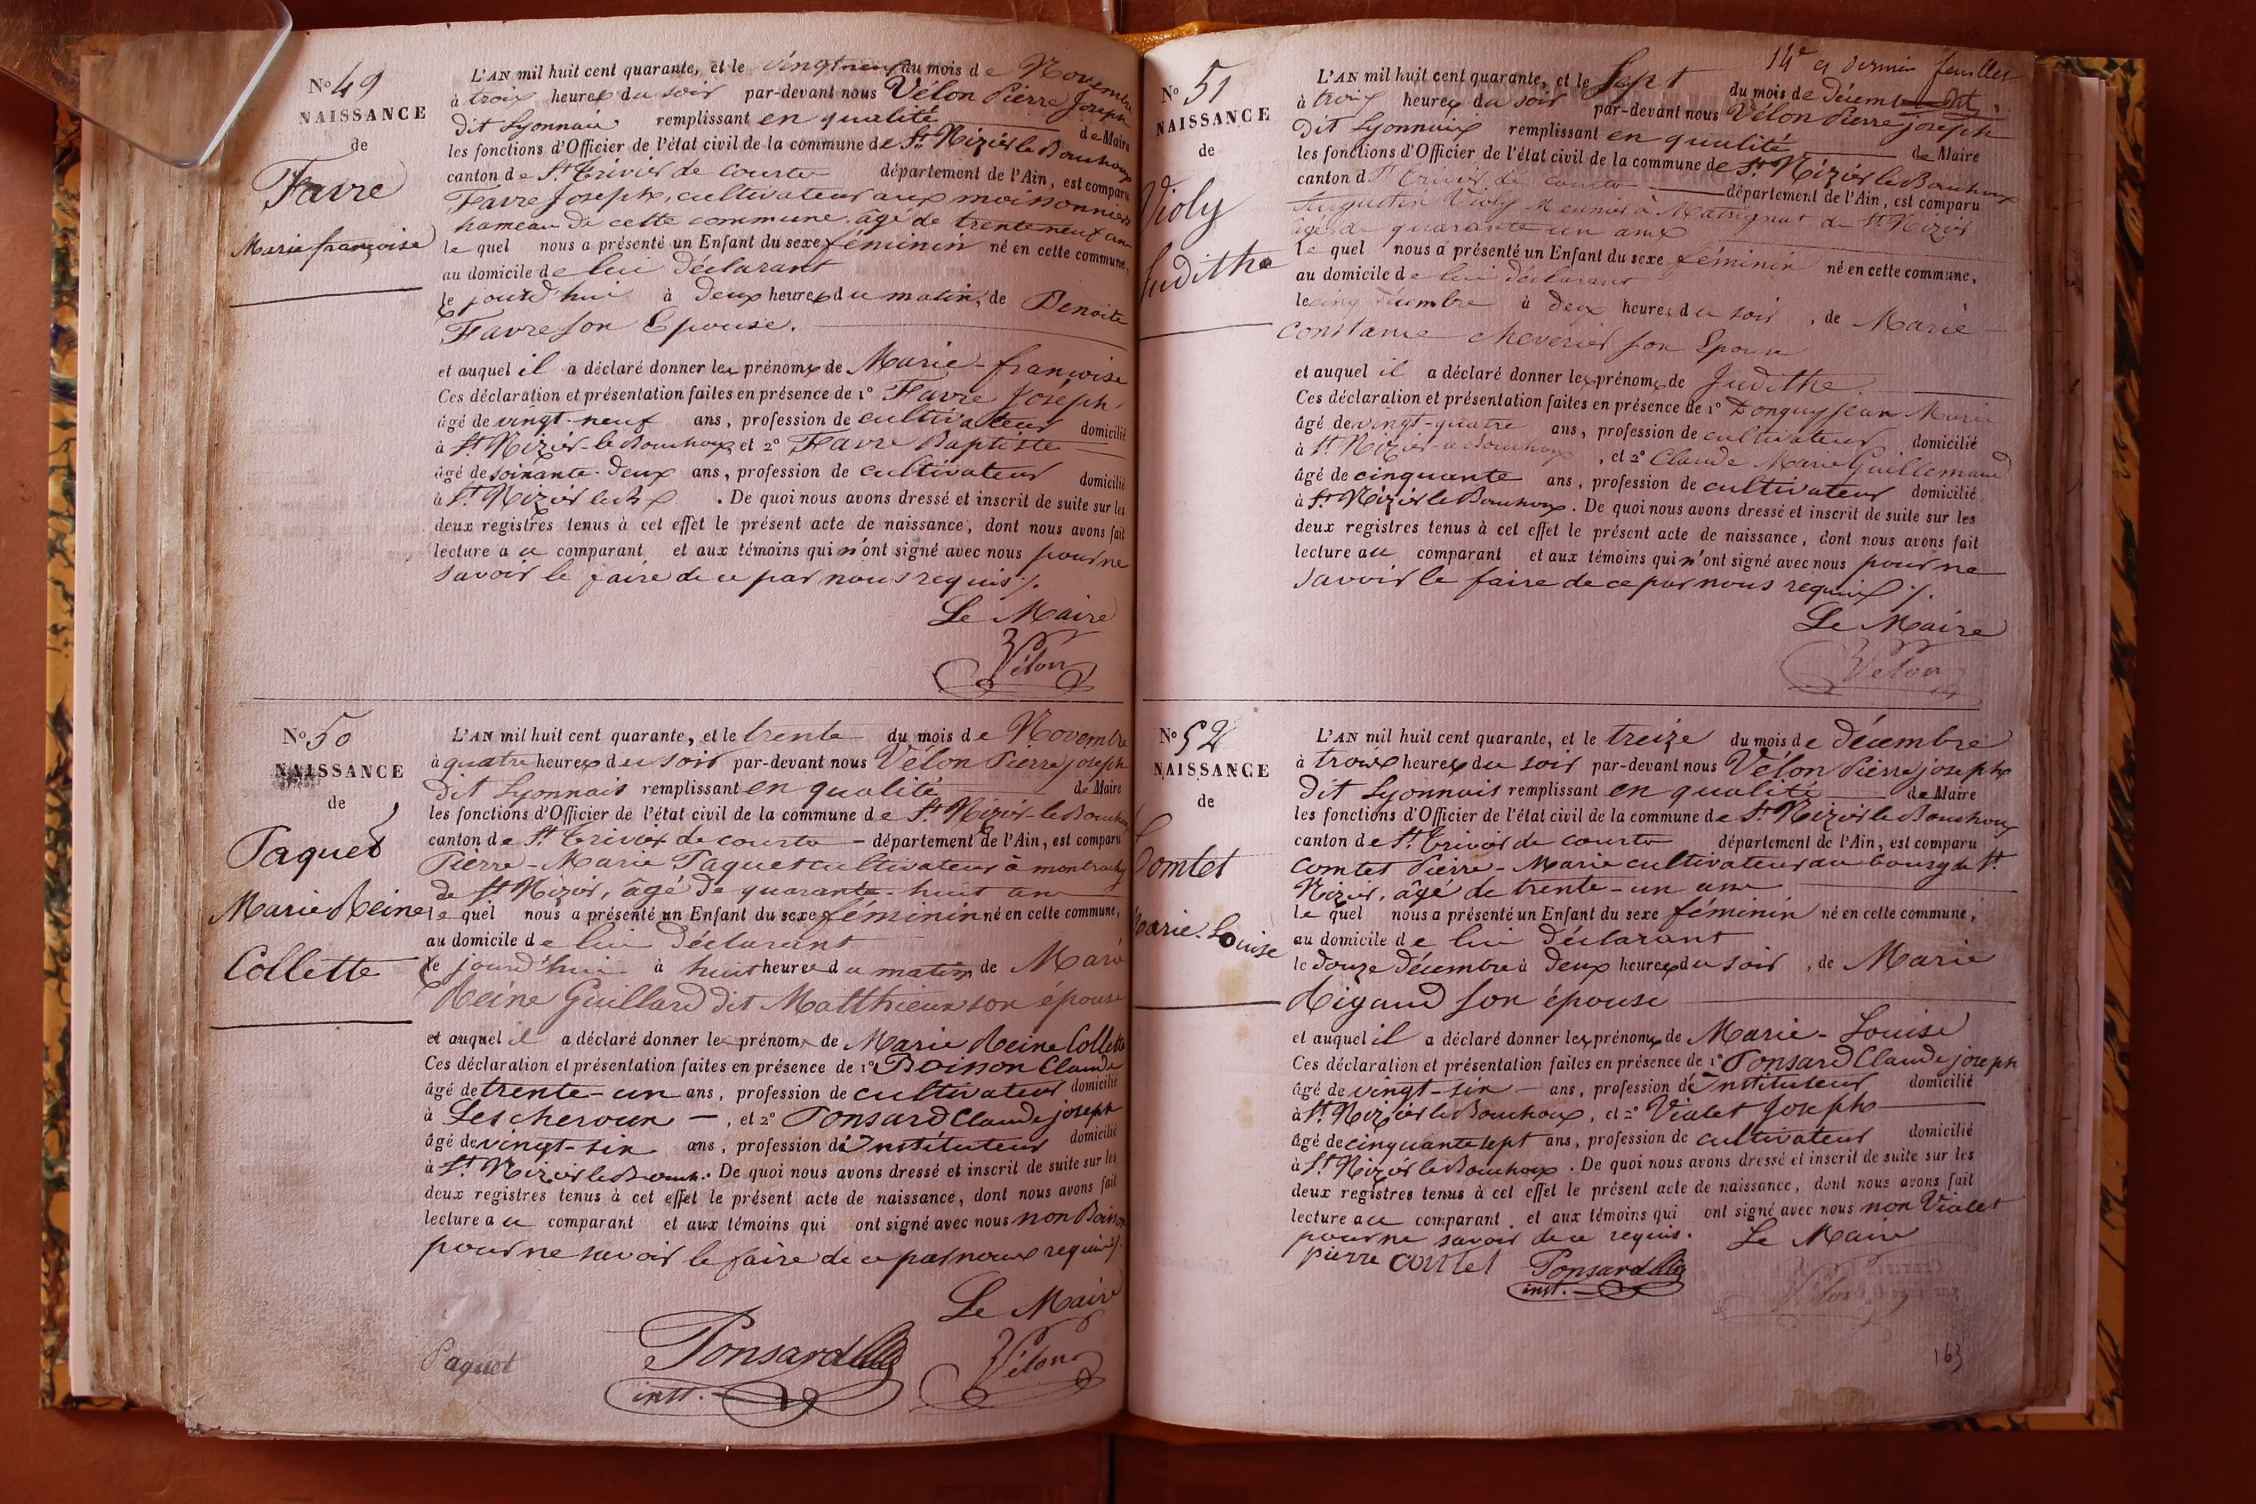 No 49
NAISSANCE
de
Favre
Marie françoise
L'AN mil huit cent quarante, et le vingt neuf du mois de Novembre
à trois heures du soir par-devant nous Vélon Pierre Joseph
dit Lyonnais remplissant en qualité de Maire
les fonctions d'Officier de l'état civil de la commune de St. Nizier le Bouchoux
canton de St. Trivier de courtes département de l'Ain, est comparu
Favre Joseph, cultivateur aux moissonniers
hameau de cette commune, âgé de trente neuf ans
le quel nous a présenté un Enfant du sexe féminin né en cette commune,
au domicile de lui déclarant
le jourd'hui à deux heures du matin, de Benoite
Favre son Epouse.
et auquel il a déclaré donner les prénoms de Marie-françoise
Ces déclaration et présentation faites en présence de 1° Favre Joseph,
âgé de vingt-neuf ans, profession de cultivateur domicilié
à St. Nizier-le Bouchoux et 2° Favre Baptiste
âgé de soixante-deux ans, profession de cultivateur domicilié
à St. Nizier le Bx. De quoi nous avons dressé et inscrit de suite sur les
deux registres tenus à cet effet le présent acte de naissance, dont nous avons fait
lecture au comparant et aux témoins qui n'ont signé avec nous pour ne
savoir le faire de ce par nous requis ./.
Le Maire
Vélon
No 50
NAISSANCE
de
Paquet
Marie Reine
Collette
L'AN mil huit cent quarante, et le trente du mois de Novembre
à quatre heures du soir par-devant nous Vélon Pierre joseph
dit Lyonnais remplissant en qualité de Maire
les fonctions d'Officier de l'état civil de la commune de St. Nizier-le Bouchoux
canton de St. Trivier de courtes département de l'Ain, est comparu
Pierre-Marie Paquet cultivateur à
de St. Nizier, âgé de quarante-huit ans
le quel nous a présenté un Enfant du sexe féminin né en cette commune,
au domicile de lui déclarant
le jourd'hui à huit heures du matin de Marie
Reine Guillard dit Matthieux son épouse
et auquel il a déclaré donner les prénoms de Marie Reine Collette
Ces déclaration et présentation faites en présence de 1° Boisson Claude
âgé de trente-un ans, profession de cultivateur domicilié
à Lescheroux, et 2° Ponsard Claude joseph
âgé de vingt-six ans, profession d'Instituteur domicilié
à St. Nizier le Bouch. De quoi nous avons dressé et inscrit de suite sur les
deux registres tenus à cet effet le présent acte de naissance, dont nous avons fait
lecture au comparant et aux témoins qui ont signé avec nous non Boisson
pour ne savoir le faire de ce par nous requis ./.
Le Maire
Paquet Ponsard Vélon
inst.
14e et dernier feuillet
No 51
NAISSANCE
de
Violy
Judithe
L'AN mil huit cent quarante, et le Sept du mois de décembre
à trois heures du soir par-devant nous Vélon Pierre joseph
dit Lyonnais remplissant en qualité de Maire
les fonctions d'Officier de l'état civil de la commune de St. Nizier le Bouchoux
canton de St. Trivier de courtes département de l'Ain, est comparu
Augustin Violy Meunier à de St. Nizier
âgé de quarante un ans
le quel nous a présenté un Enfant du sexe féminin né en cette commune,
au domicile de lui déclarant
le cinq décembre à deux heures du soir, de Marie
Constance cheverier son Epouse
et auquel il a déclaré donner les prénoms de Judithe
Ces déclaration et présentation faites en présence de 1° Donguy Jean Marie
âgé de vingt-quatre ans, profession de cultivateur domicilié
à St. Nizier le Bouchoux, et 2° Claude Marie Guillemaud
âgé de cinquante ans, profession de cultivateur domicilié
à St. Nizier le Bouchoux. De quoi nous avons dressé et inscrit de suite sur les
deux registres tenus à cet effet le présent acte de naissance, dont nous avons fait
lecture au comparant et aux témoins qui n'ont signé avec nous pour ne
savoir le faire de ce par nous requis ./.
Le Maire
Vélon
No 52
NAISSANCE
de
Comtet
Marie-Louise
L'AN mil huit cent quarante, et le treize du mois de décembre
à trois heures du soir par-devant nous Vélon Pierre joseph
dit Lyonnais remplissant en qualité de Maire
les fonctions d'Officier de l'état civil de la commune de St. Nizier le Bouchoux
canton de St. Trivier de courtes département de l'Ain, est comparu
Comtet Pierre-Marie cultivateur au bourg de St.
Nizier, âgé de trente-un ans
le quel nous a présenté un Enfant du sexe féminin né en cette commune,
au domicile de lui déclarant
le douze décembre à deux heures du soir, de Marie
Rigaud son épouse
et auquel il a déclaré donner les prénoms de Marie-Louise
Ces déclaration et présentation faites en présence de 1° Ponsard Claude joseph
âgé de vingt-six ans, profession d'Instituteur domicilié
à St. Nizier le Bouchoux, et 2° Vialet Joseph
âgé de cinquante sept ans, profession de cultivateur domicilié
à St. Nizier le Bouchoux. De quoi nous avons dressé et inscrit de suite sur les
deux registres tenus à cet effet le présent acte de naissance, dont nous avons fait
lecture au comparant et aux témoins qui ont signé avec nous non Vialet
pour ne savoir de ce requis. Le Maire
pierre comtet Ponsard Vélon
inst.
163